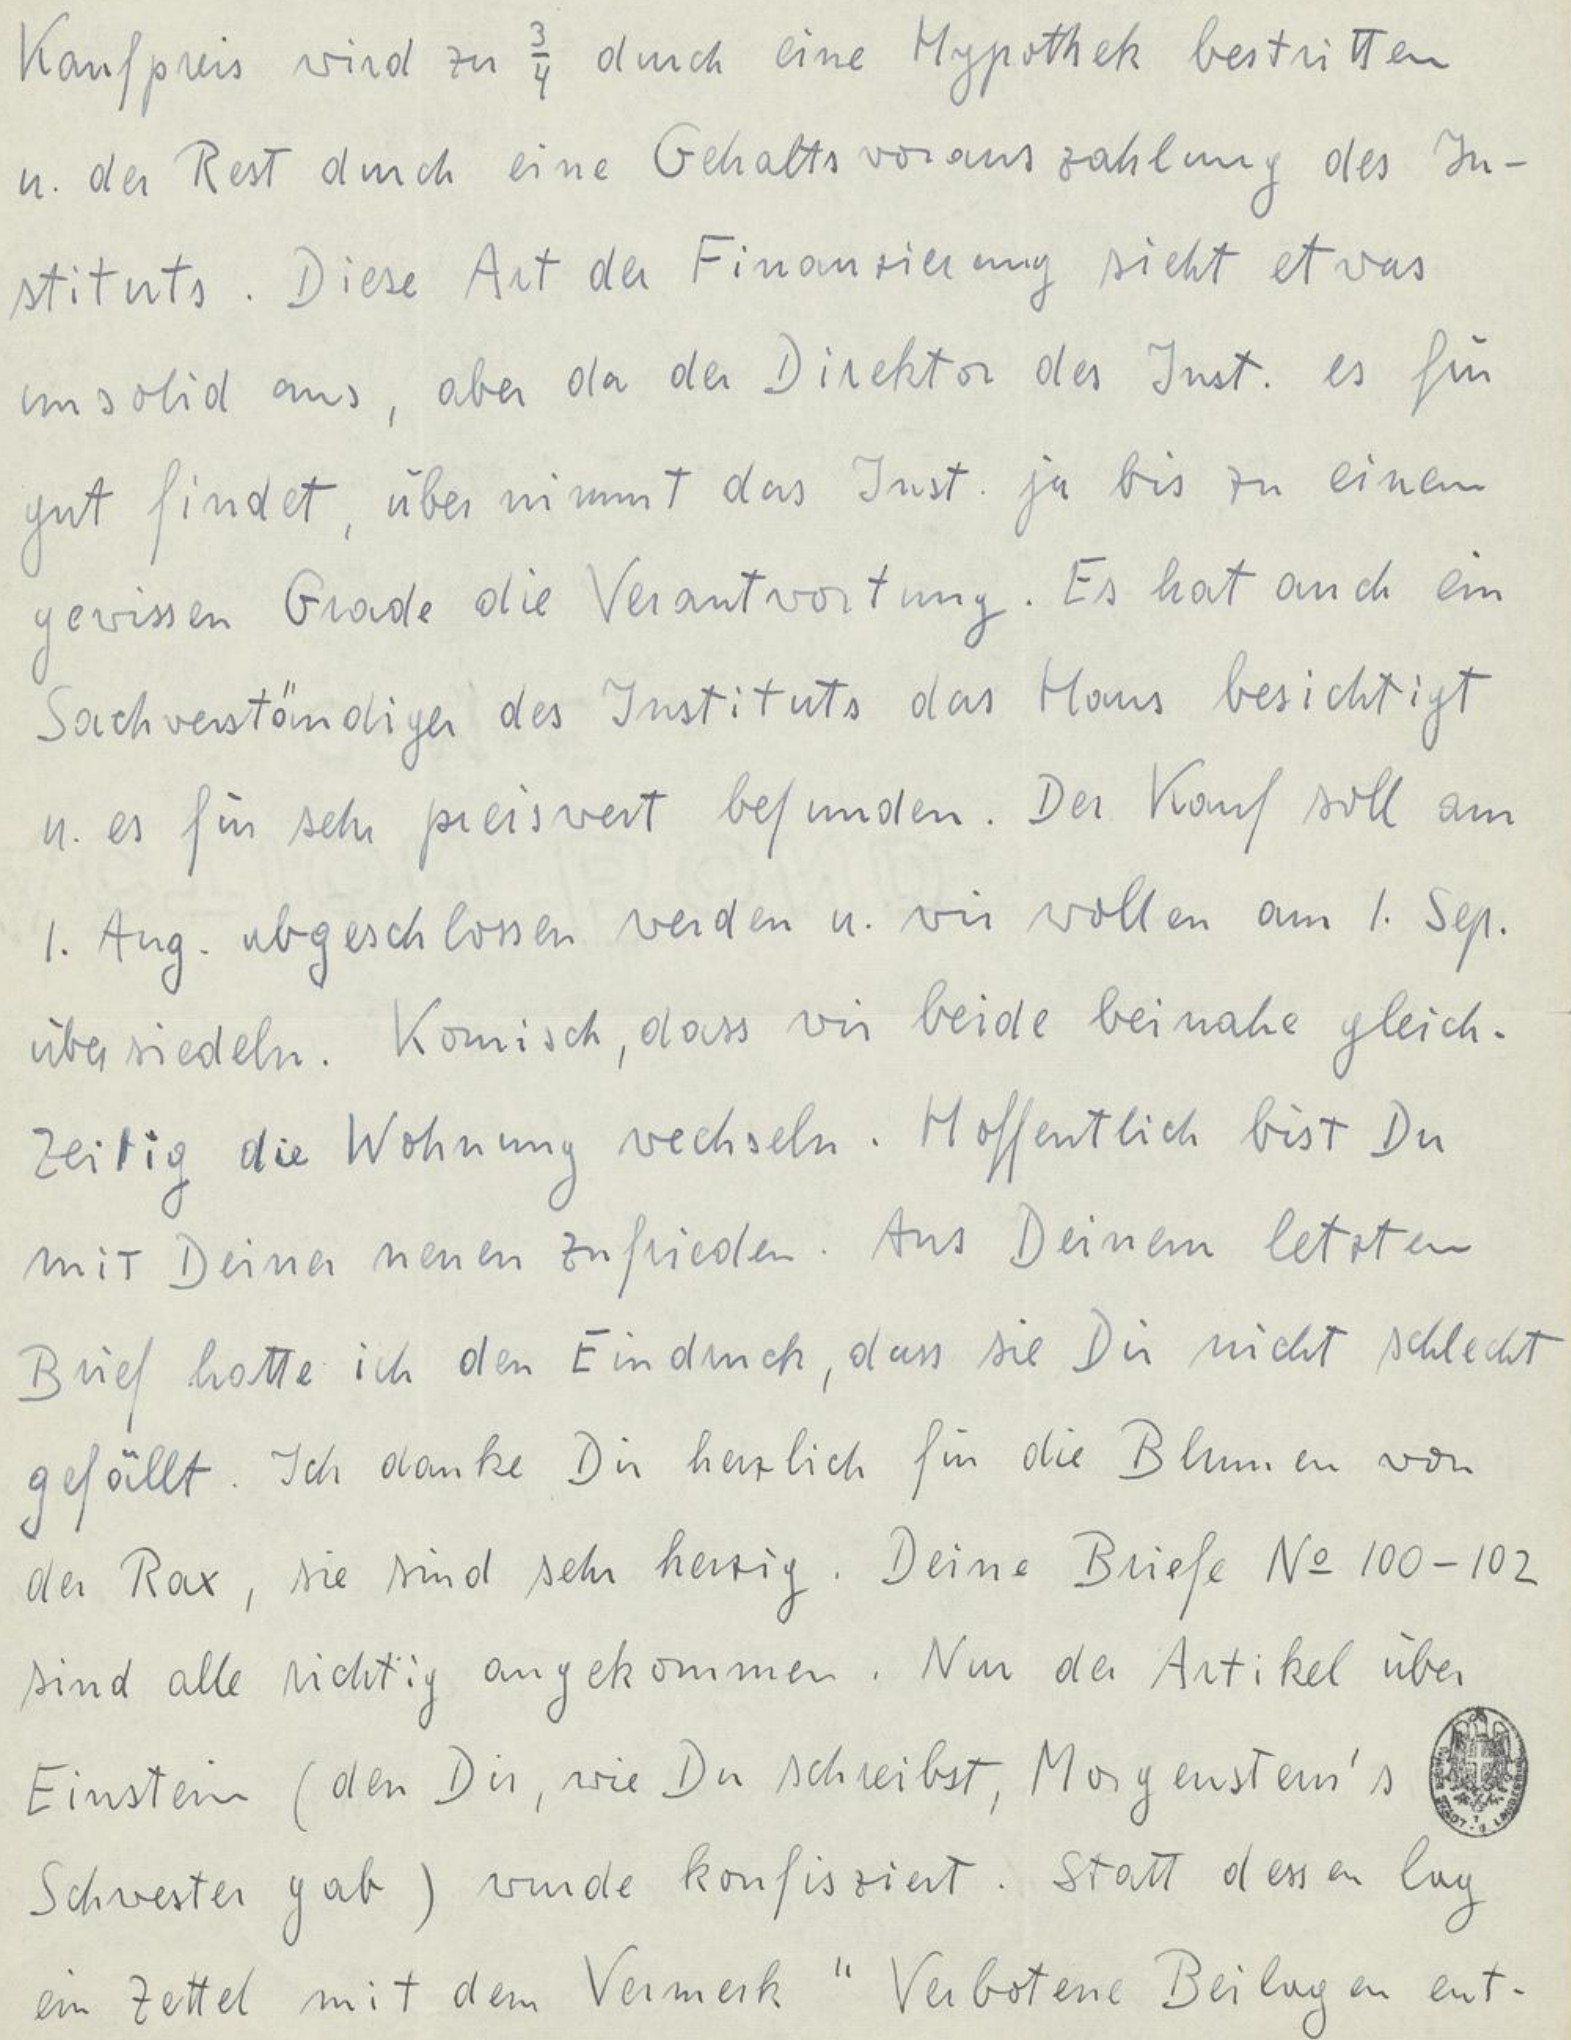 Kaufpreis wird zu 3/4 durch eine Hypothek bestritten
u. der Rest durch eine Gehaltsvorauszahlung des In-
stituts. Diese Art der Finanzierung sieht etwas
unsolid aus, aber da der Direktor des Inst. es für
gut findet, übernimmt das Inst. ja bis zu einem
gewissen Grade die Verantwortung. Es hat auch ein
Sachverständiger des Instituts das Haus besichtigt
u. es für sehr preiswert befunden. Der Kauf soll am
1. Aug. abgeschlossen werden u. wir wollen am 1. Sep.
übersiedeln. Komisch, dass wir beide beinahe gleich-
zeitig die Wohnung wechseln. Hoffentlich bist Du
mit Deiner neuen zufrieden. Aus Deinem letzten
Brief hatte ich den Eindruck, dass sie Dir nicht schlecht
gefällt. Ich danke Dir herzlich für die Blumen von
der Rax, sie sind sehr herzig. Deine Briefe № 100-102
sind alle richtig angekommen. Nur der Artikel über
Einstein (den Dir, wie Du schreibst, Morgenstern's
Schwester gab) wurde konfisziert. Statt dessen lag
ein Zettel mit dem Vermerk "Verbotene Beilagen ent-